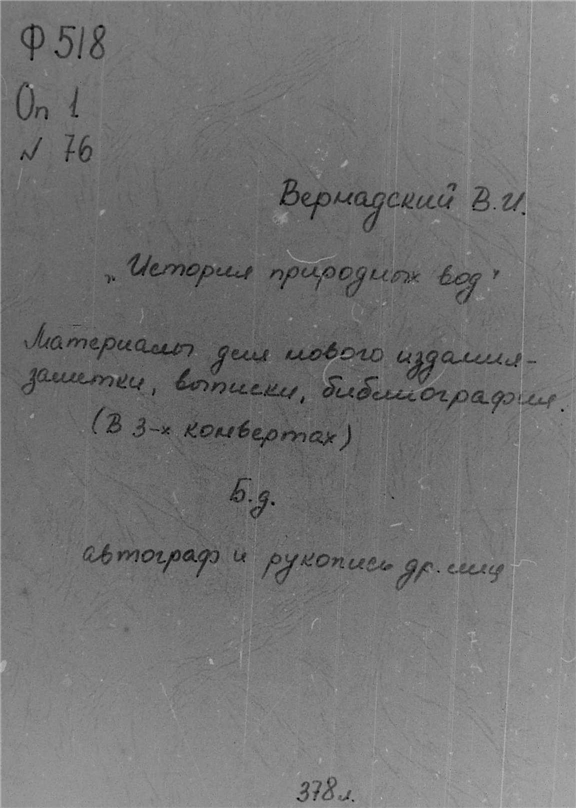 Ф 518
Оп 1
N 76
Вернадский В.И.
„История природных вод"
Материалы для нового издания-
заметки, выписки, библиография.
(В 3-х конвертах)
Б.д.
автограф и рукопись др. лиц
378 л.